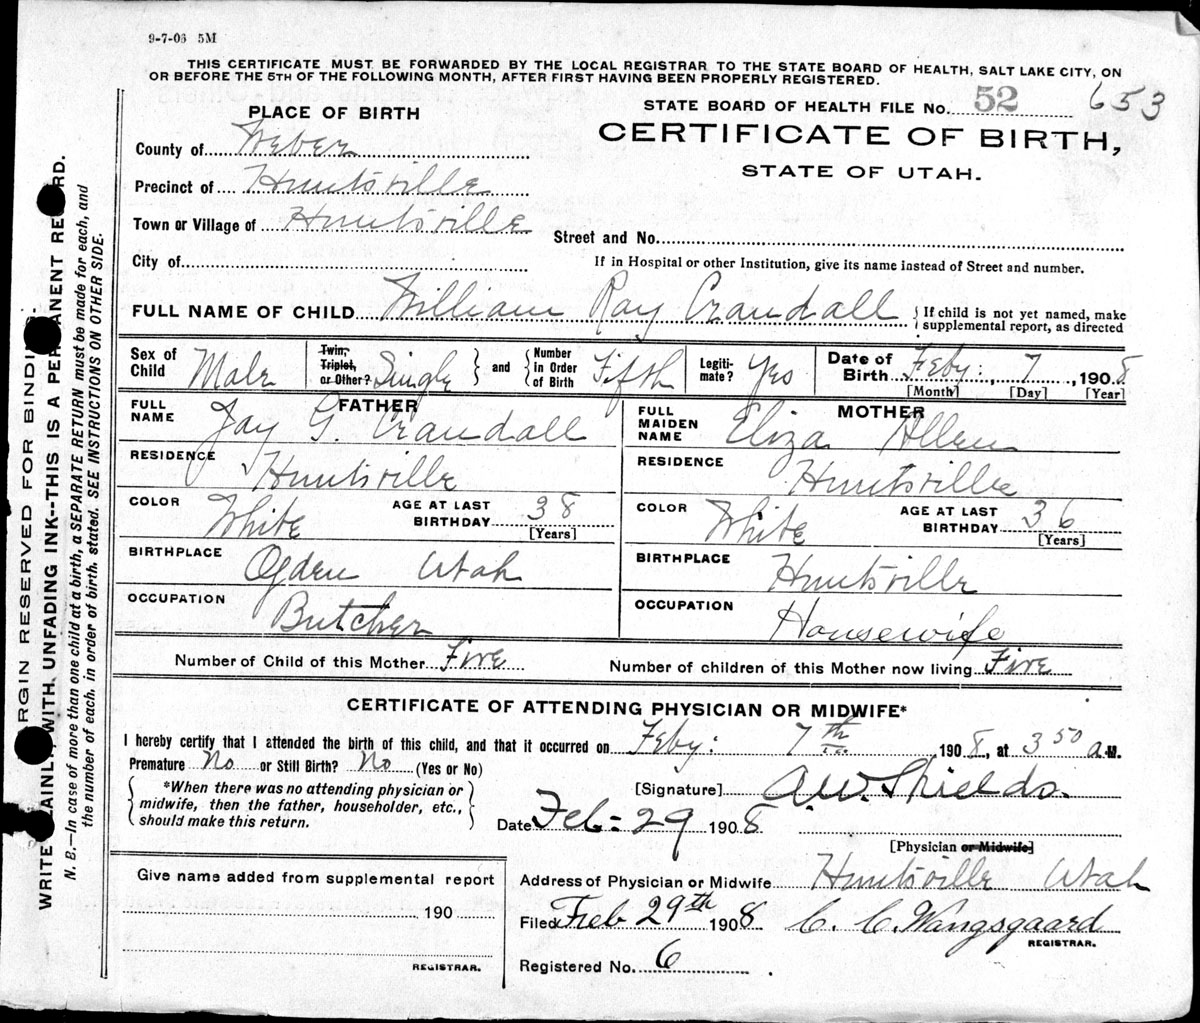 9-7-06 5M
THIS CERTIFICATE MUST BE FORWARDED BY THE LOCAL REGISTRAR TO THE STATE BOARD OF HEALTH, SALT LAKE CITY, ON
OR BEFORE THE 5TH OF THE FOLLOWING MONTH, AFTER FIRST HAVING BEEN PROPERLY REGISTERED.
STATE BOARD OF HEALTH FILE No. 52 653
CERTIFICATE OF BIRTH,
STATE OF UTAH.
PLACE OF BIRTH
County of Weber
Precinct of Huntsville
Town or Village of Huntsville
Street and No.
City of
If in Hospital or other Institution, give its name instead of Street and number.
FULL NAME OF CHILD William Ray Crandall { If child is not yet named, make
supplemental report, as directed
Sex of Child Male
Twin, Triplet, or Other? Single } and { Number in Order of Birth Fifth
Legiti-mate? Yes
Date of Birth Feby: 7, 1908
[Month] [Day] [Year]
FATHER
FULL NAME Jay G. Crandall
RESIDENCE Huntsville
COLOR White AGE AT LAST BIRTHDAY 38
[Years]
BIRTHPLACE Ogden Utah
OCCUPATION Butcher
MOTHER
FULL MAIDEN NAME Eliza Allen
RESIDENCE Huntsville
COLOR White AGE AT LAST BIRTHDAY 36
[Years]
BIRTHPLACE Huntsville
OCCUPATION Housewife
Number of Child of this Mother Five Number of children of this Mother now living Five
CERTIFICATE OF ATTENDING PHYSICIAN OR MIDWIFE*
I hereby certify that I attended the birth of this child, and that it occurred on Feby: 7th 1908, at 3 50 a.M.
Premature No or Still Birth? No (Yes or No)
{ *When there was no attending physician or
midwife, then the father, householder, etc.,
should make this return. }
[Signature] A.W. Shields.
Date Feb-29 1908
[Physician or Midwife]
Address of Physician or Midwife Huntsville Utah
Filed Feb 29th 1908 C. C. Wangsgaard
REGISTRAR.
Registered No. 6
Give name added from supplemental report
190
REGISTRAR.
RGIN RESERVED FOR BINDI
WRITE LAINLY WITH UNFADING INK--THIS IS A PER ANENT RE RD.
N. B.--In case of more than one child at a birth, a SEPARATE RETURN must be made for each, and
the number of each, in order of birth, stated. SEE INSTRUCTIONS ON OTHER SIDE.